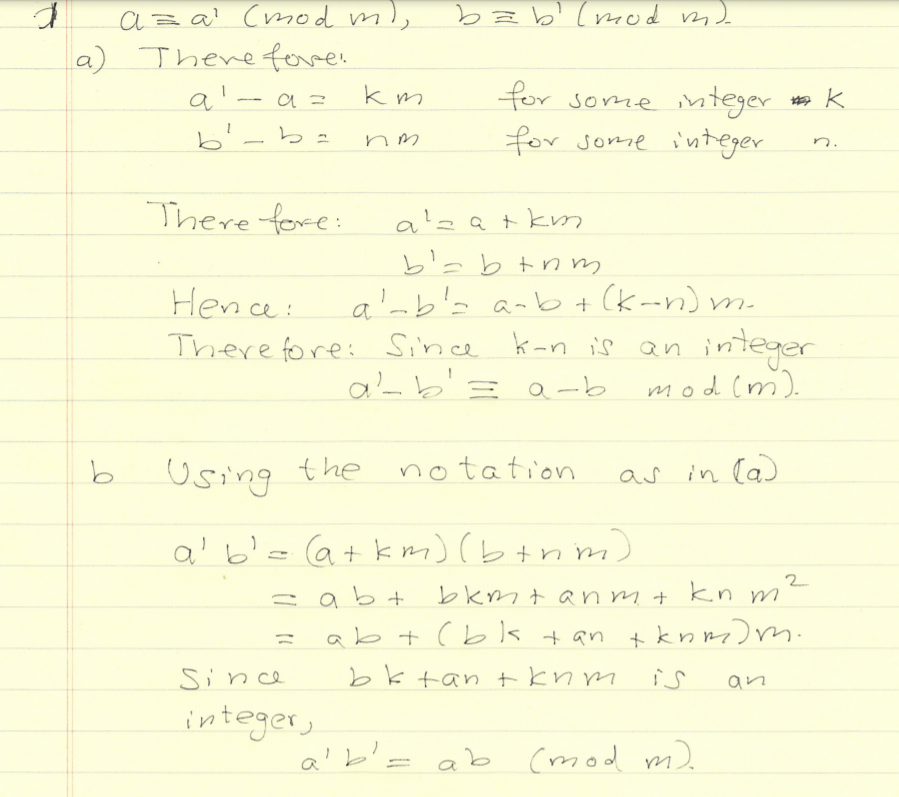 1 a ≡ a' (mod m), b ≡ b' (mod m).
a) Therefore:
a' - a = km for some integer k
b' - b = nm for some integer n.
Therefore: a' = a + km
b' = b + nm
Hence: a' - b' = a - b + (k - n) m.
Therefore: Since k-n is an integer
a' - b' ≡ a - b mod (m).
b Using the notation as in (a)
a' b' = (a + km) (b + nm)
= ab + bkm + anm + kn m²
= ab + (bk + an + knm) m.
Since bk + an + knm is an
integer,
a' b' = ab (mod m).